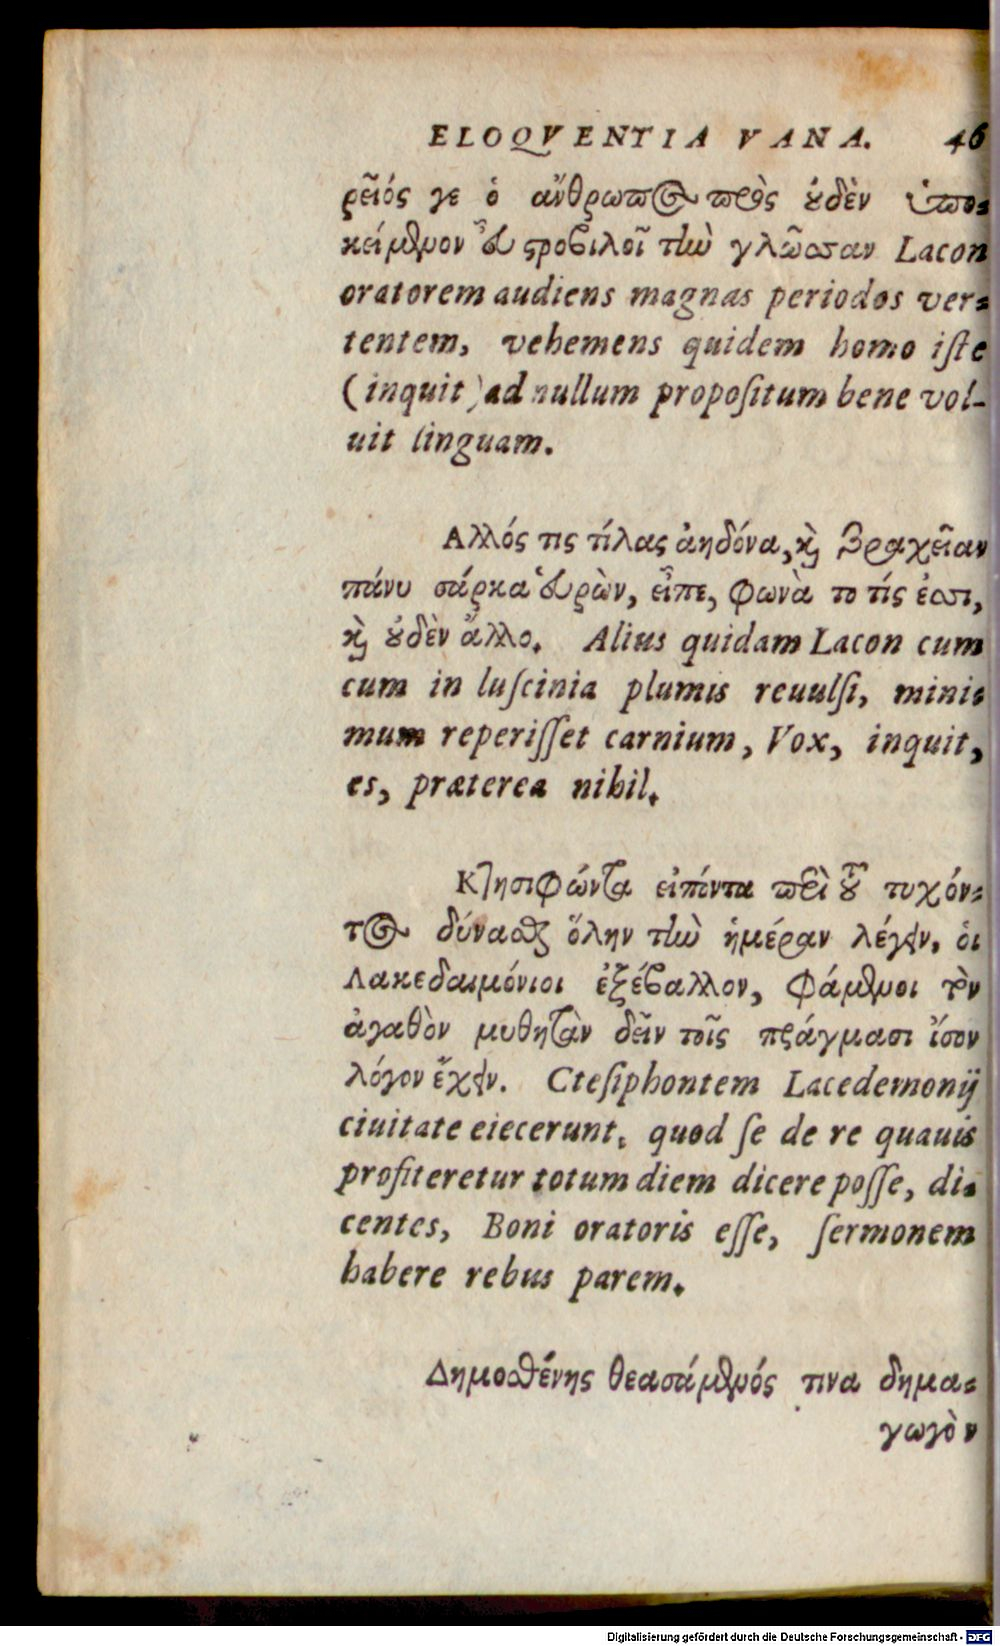 ELOQVENTIA VANA. 46
ρεῖός γε ὁ ἄνθρωπος πρὸς οὐδὲν ὑπο-
κείμενον εὖ στροβιλοῖ τὴν γλῶσσαν Lacon
oratorem audiens magnas periodos ver-
tentem, vehemens quidem homo iſte
(inquit) ad nullum propoſitum bene vol-
uit linguam.
Αλλός τις τίλας ἀηδόνα, καὶ βραχεῖαν
πάνυ σάρκα εὑρὼν, εἶπε, φωνὰ το τίς ἐσσι,
καὶ οὐδὲν ἄλλο. Alius quidam Lacon cum
cum in luſcinia plumis reuulſi, mini-
mum reperiſſet carnium, Vox, inquit,
es, præterea nihil.
Κτησιφώντα εἰπόντα περὶ τοῦ τυχόν-
τος δύνασθαι ὅλην τὴν ἡμέραν λέγειν, οἱ
Λακεδαιμόνιοι ἐξέβαλλον, φάμενοι τὸν
ἀγαθὸν μυθητὰν δεῖν τοῖς πράγμασι ἴσον
λόγον ἔχειν. Cteſiphontem Lacedemonij
ciuitate eiecerunt, quod ſe de re quauis
profiteretur totum diem dicere poſſe, di-
centes, Boni oratoris eſſe, ſermonem
habere rebus parem.
Δημοσθένης θεασάμενός τινα δημα-
γωγὸν
Digitalisierung gefördert durch die Deutsche Forschungsgemeinschaft - DFG